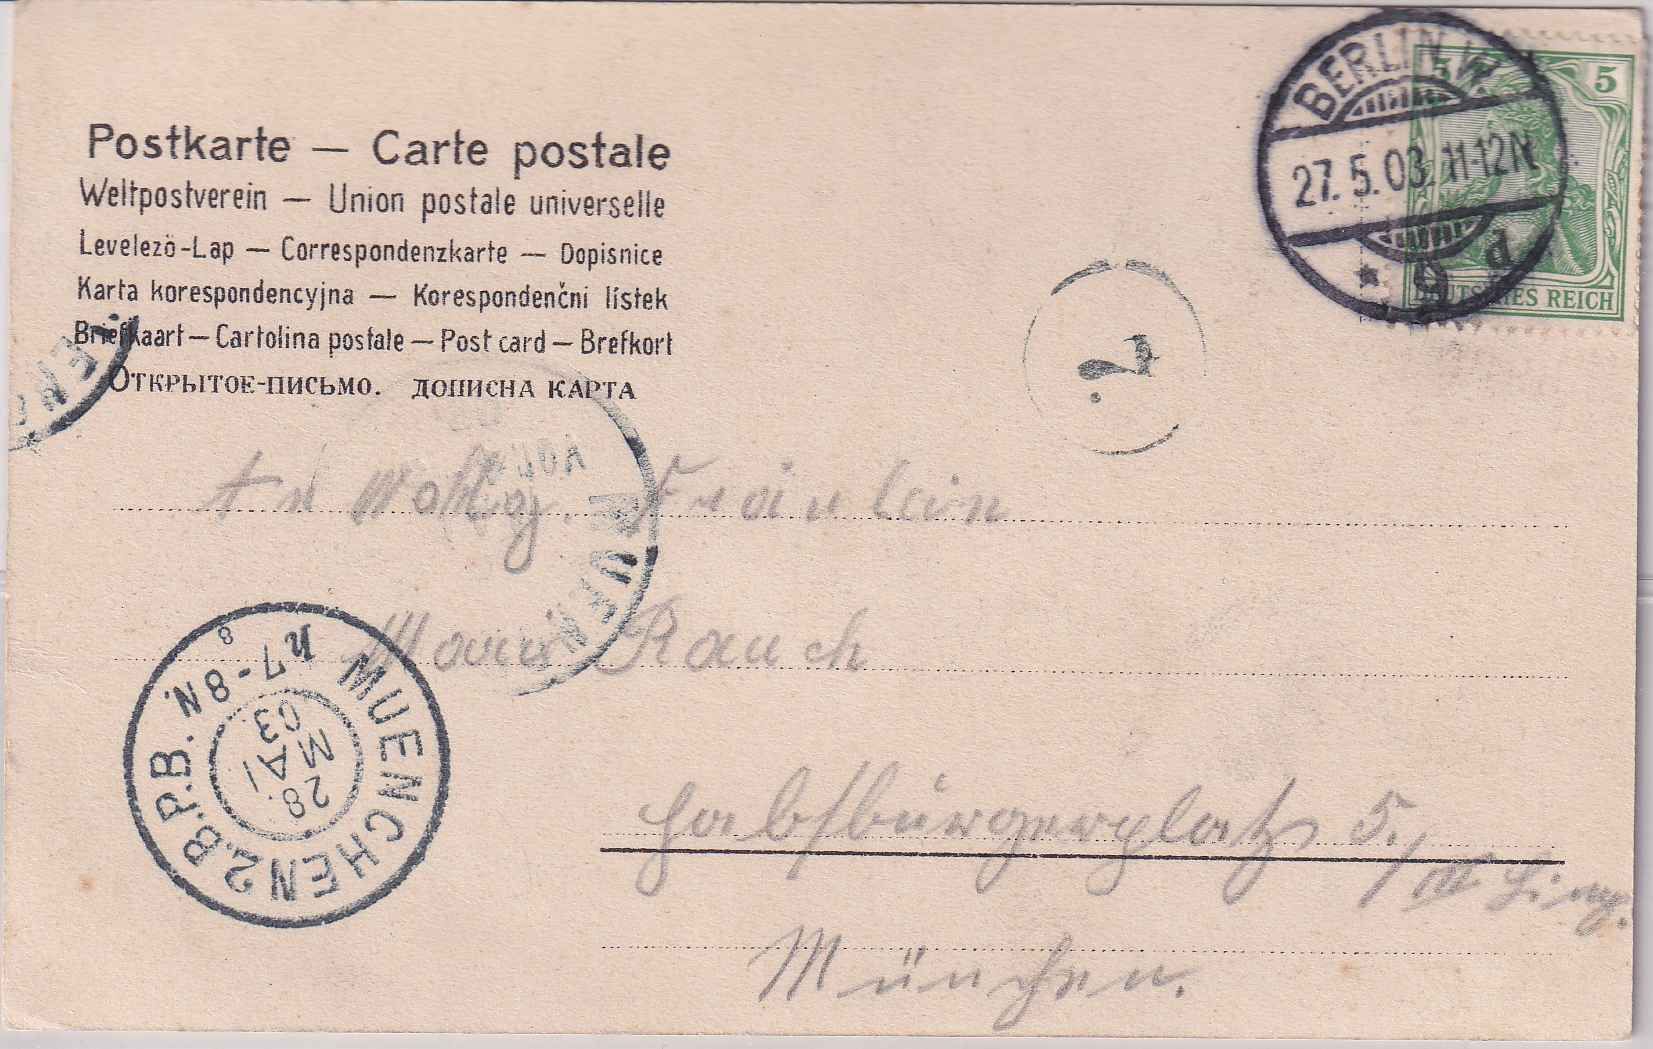 Postkarte — Carte postale
Weltpostverein — Union postale universelle
Levelezö-Lap — Correspondenzkarte — Dopisnice
Karta korespondencyjna — Korespondenční lístek
Briefkaart — Cartolina postale — Post card — Brefkort
Открытое-письмо. дописна карта
BERLIN.W.
27.5.03.11-12N
* 9 d
5 5
DEUTSCHES REICH
2.
An Wohlg. Fräulein
Rauch
Habsburgerplatz 5./
München.
MUENCHEN 2.B.P.B.
7-8N.
8
28.
MAI
03
MUEN